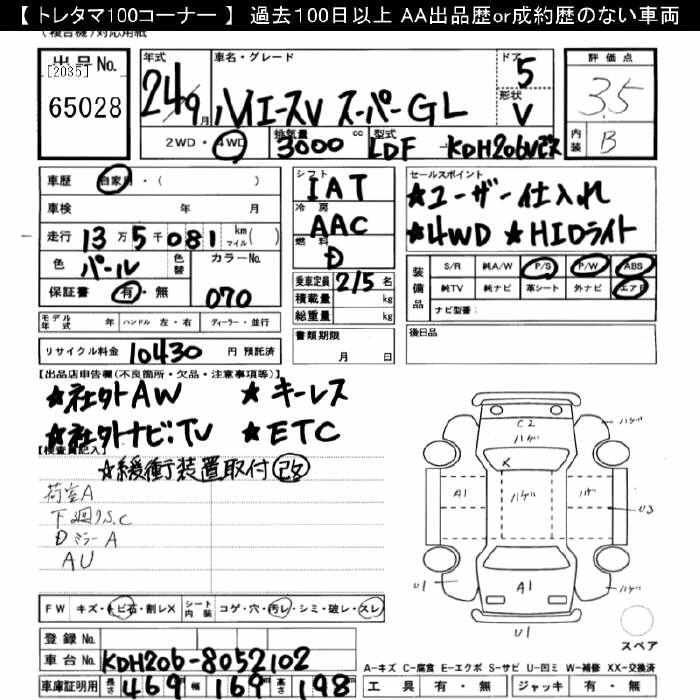 【 トレタマ100コーナー 】 過去100日以上 AA出品歴or成約歴のない車両
(複合機)対応用紙
出品No.
[2035]
65028
年式
24/9月
車名・グレード
ハイエースV スーパーGL
ドア
5
形状
V
評価点
3.5
内装
B
2WD・4WD
排気量
3000 cc
型式
LDF - KDH206V改ス
車歴 自家用・( )
車検 年 月
走行 13万5千081 km マイル( )
色 パール 色替 カラーNo.
070
保証書 有・無
シフト
IAT
冷房
AAC
燃料
D
乗車定員 2/5 名
積載量 kg
総重量 kg
書類期限
月 日
セールスポイント
★ユーザー仕入れ
★4WD ★HIDライト
装備品
S/R 純A/W P/S P/W ABS
純TV 純ナビ 革シート 外ナビ エアB
ナビ型番:
後日品
モデル年式 年 ハンドル 左・右 ディーラー・並行
リサイクル料金 10430 円 預託済
【出品店申告欄(不良箇所・欠品・注意事項等)】
★社外AW ★キーレス
★社外ナビ:TV ★ETC
【検査員記入】
☆緩衝装置取付 改
荷室A
下廻りS.C
Dミラー A
AU
C2
ハゲ
ハゲ
X
A1
ハゲ
ハゲ
U3
U1
A1
U1
ハゲ
スペア
FW キズ・トビ石・割レX シート内装 コゲ・穴・汚レ・シミ・破レ・スレ
登録No.
車台No. KDH206-8052102
車庫証明用 長さ 469 幅 169 高さ 198
A-キズ C-腐食 E-エクボ S-サビ U-凹ミ W-補修 XX-交換済
工具 有・無 ジャッキ 有・無